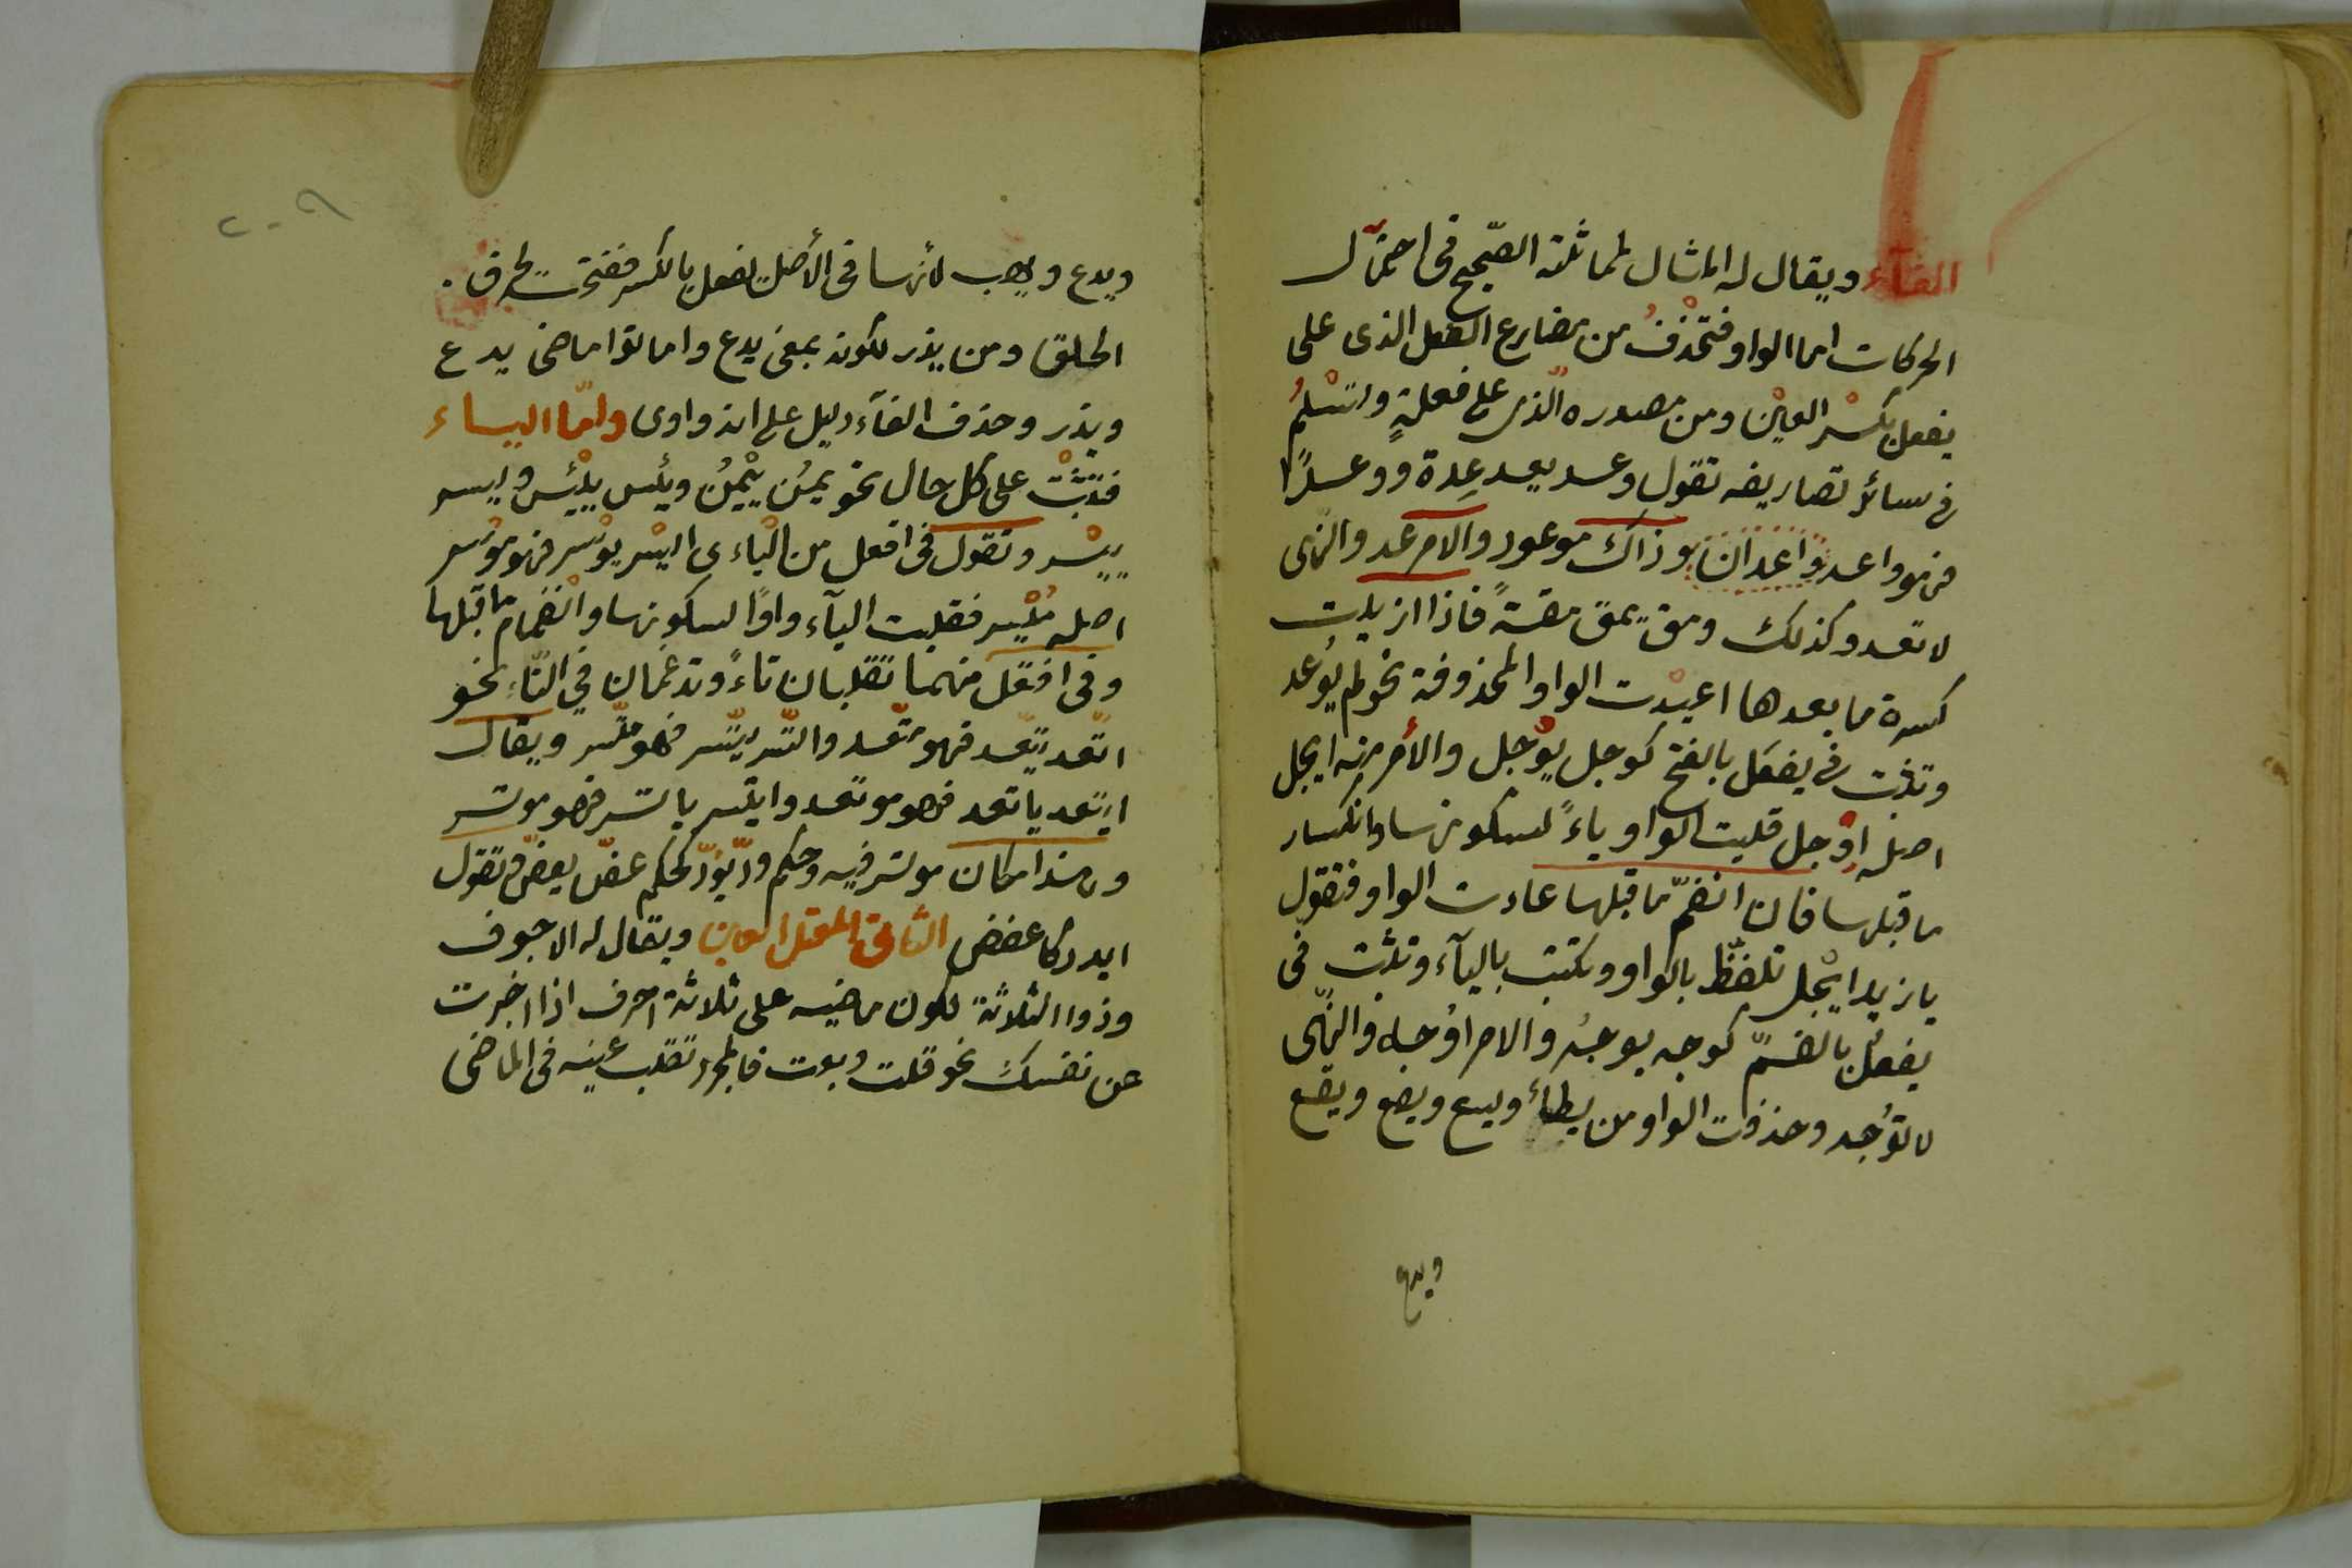 الفآء ويقال له المثال لمماثلته الصّحيح فى احتمآل
الحركات اما الواو فتحْذفُ من مضارع الفعل الذى على
يفعل بكسْر العيْن ومن مصدره الّذى على فعلةٍ وتسْلمُ
فى سائر تصاريفه تقول وعد يعد عِدة ووعدًا
فهو واعد واعدان وذاك موعود والامر عد والنّهى
لا تعد وكذلك ومق يمق مقةً فاذا ازيلت
كسرة ما بعدها اعيدت الواو المحذوفة نحو لم يُوعد
وتثبت فى يفعَل بالفتح كوجل يوْجل والأمر منه ايجل
اصله اوْجل قلبت الواو ياءً لسكونها وانكسار
ما قبلها فان انضمّ ما قبلها عادت الواو فتقول
يا زيد ايْجل تلفظ بالواو وتكتب باليآء وتثبت فى
يفعُل بالضمّ كوجه يوجُه والامر اوُجه والنّهى
لا توُجه وحذفت الواو من يطأ ويسع ويضع ويقع
ويدع
٢٠٩
ويدع ويهب لأنها فى الأصل يفعل بالكسر ففتحت لحرف
الحلق ومن يذر لكونه بمعنى يدع واماتوا ماضى يدع
ويذر وحذف الفآء دليل على انه واوى وامّا اليـاء
فتثبْت على كل حال نحو يمُن ييْمُن ويئس ييْئس ويسر
ييْسر وتقول فى افعل من اليْاءى ايْسر يوْسر فهو موْسر
اصله مُيْسر فقلبت اليآء واوًا لسكونها وانْضمام ما قبلها
وفى افتعَل منهما تقلبان تاءً وتدغمان في التّاء نحو
اتّعد يتّعد فهو متّعد واتّسر يتّسر فهو متّسر ويقال
ايتعد ياتعد فهو موتعد وايتسر ياتسر فهو موتسر
وهذا مكان موتسر فيه وحكم ودّ يودّ كحكم عضّ يعضّ وتقول
ايدد كاعضض الثانى المعتل العين ويقال له الاجوف
وذوا الثلاثة لكون ماضيه على ثلاثة احرف اذا اخبرت
عن نفسك نحو قلت وبعت فالمجرد تقلب عينه فى الماضى